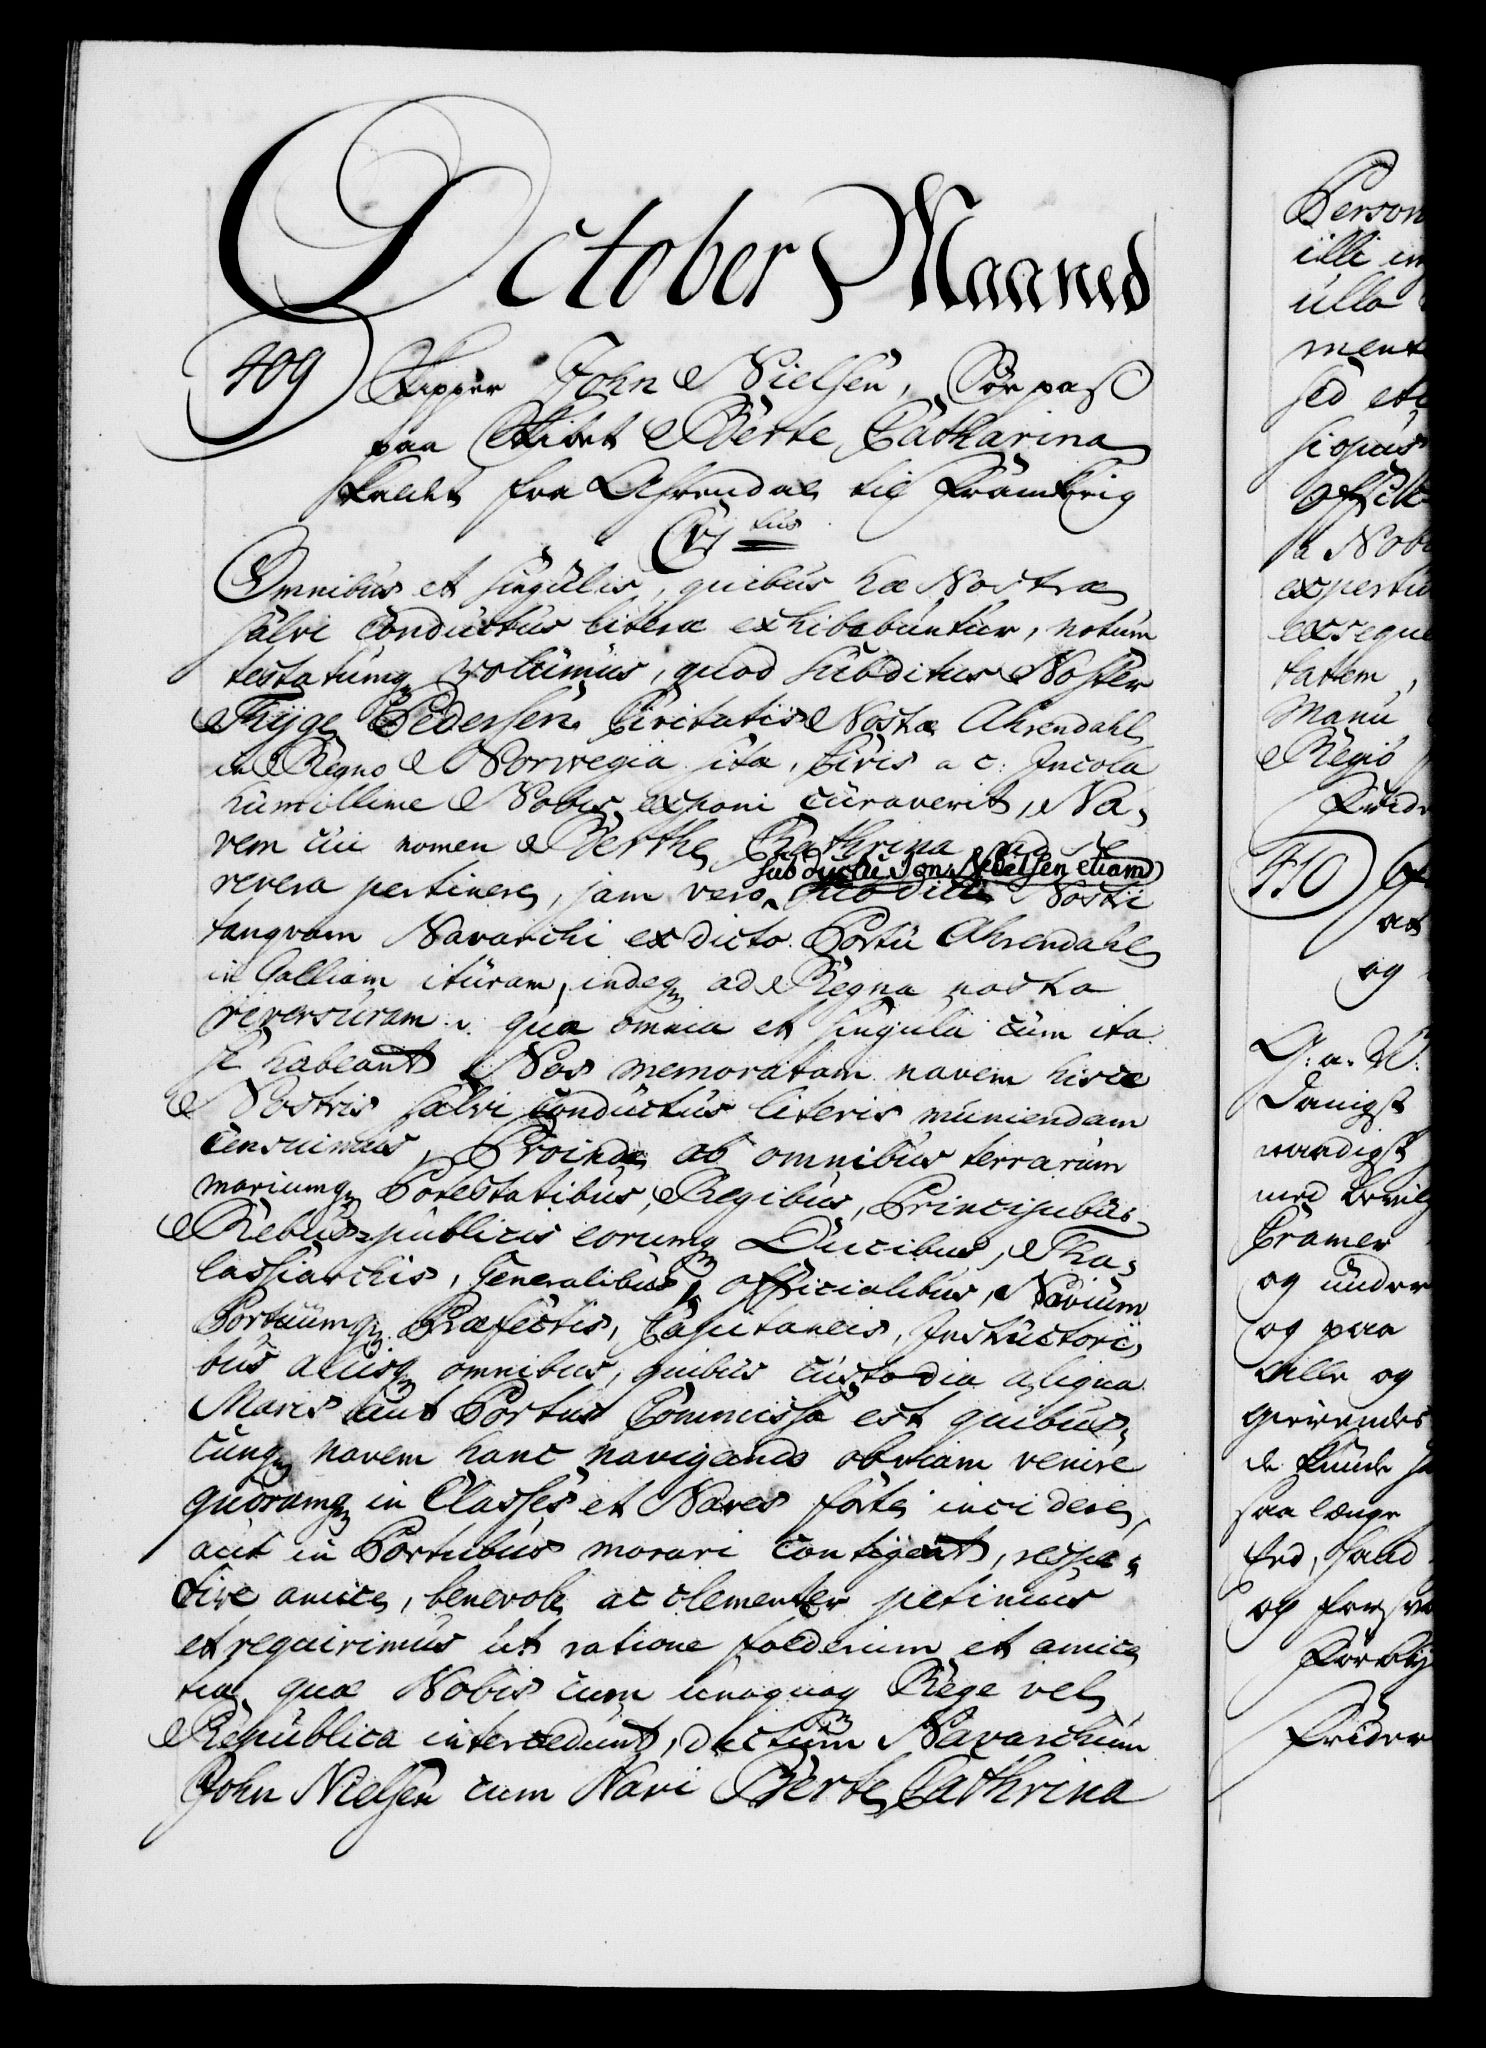 October Maaned
409
Skipper John Nielsen, Söe pas
paa Skibet Berte Catharina
fra Ahrendal til Franckrig
Omnibus et singulis, quibus hæ Nostræ
salvi Conductus literæ exhibebuntur, notum
testatumq volumus, quod subditus Noster
Thyge Pedersen Civitatis Nostræ Ahrendahl
in Regno Norwegiæ sitæ, Civis ac Incola
humillime Nobis exponi curaverit, Na-
vem cui nomen Berthe Cathrina ad se
sub ductu Jon Nielsen etiam
revera pertinere, jam vero Nostri
tanqvam Navarchi ex dicto Portu Ahrendahl
in Galliam ituram, indeq ad Regna nostra
reversuram. quæ omnia et singula cum ita
se habeant Nos memoratam navem hisce
Nostris salvi conductus literis muniendam
censuimus, Proinde ab omnibus terrarum
mariumq Potestatibus, Regibus, Principibus
Rebus-publicis eorumq Ducibus, Tha-
lassiarchis, Generalibus, Officialibus, Navium
Portuumq Præfectis, Capitaneis, Instructori-
bus aliisq omnibus, quibus custodia aliqua
Maris aut Portus Commissa est quibus-
cunq navem hanc navigando obviam venire
quorumq in Classes et Naves forte incidere,
aut in Portubus morari contigent, respe-
ctive amice, benevole ac clementer petimus
et requirimus ut ratione foederum et amici-
tiæ quæ Nobis cum unaquaq Rege vel
Republica intercedunt, dictum Navarchum
John Nielsen cum Navi Berte Cathrina
Person
illi
ulla
ment
sed
signus
offic
a Nob
expertu
exseque
tatem,
Manu
Regio
Frider
410
at
og
G: a: V:
Danigst
værdigst
med
Cramer
og under
og paa
alle og
saa længe
og
Frider